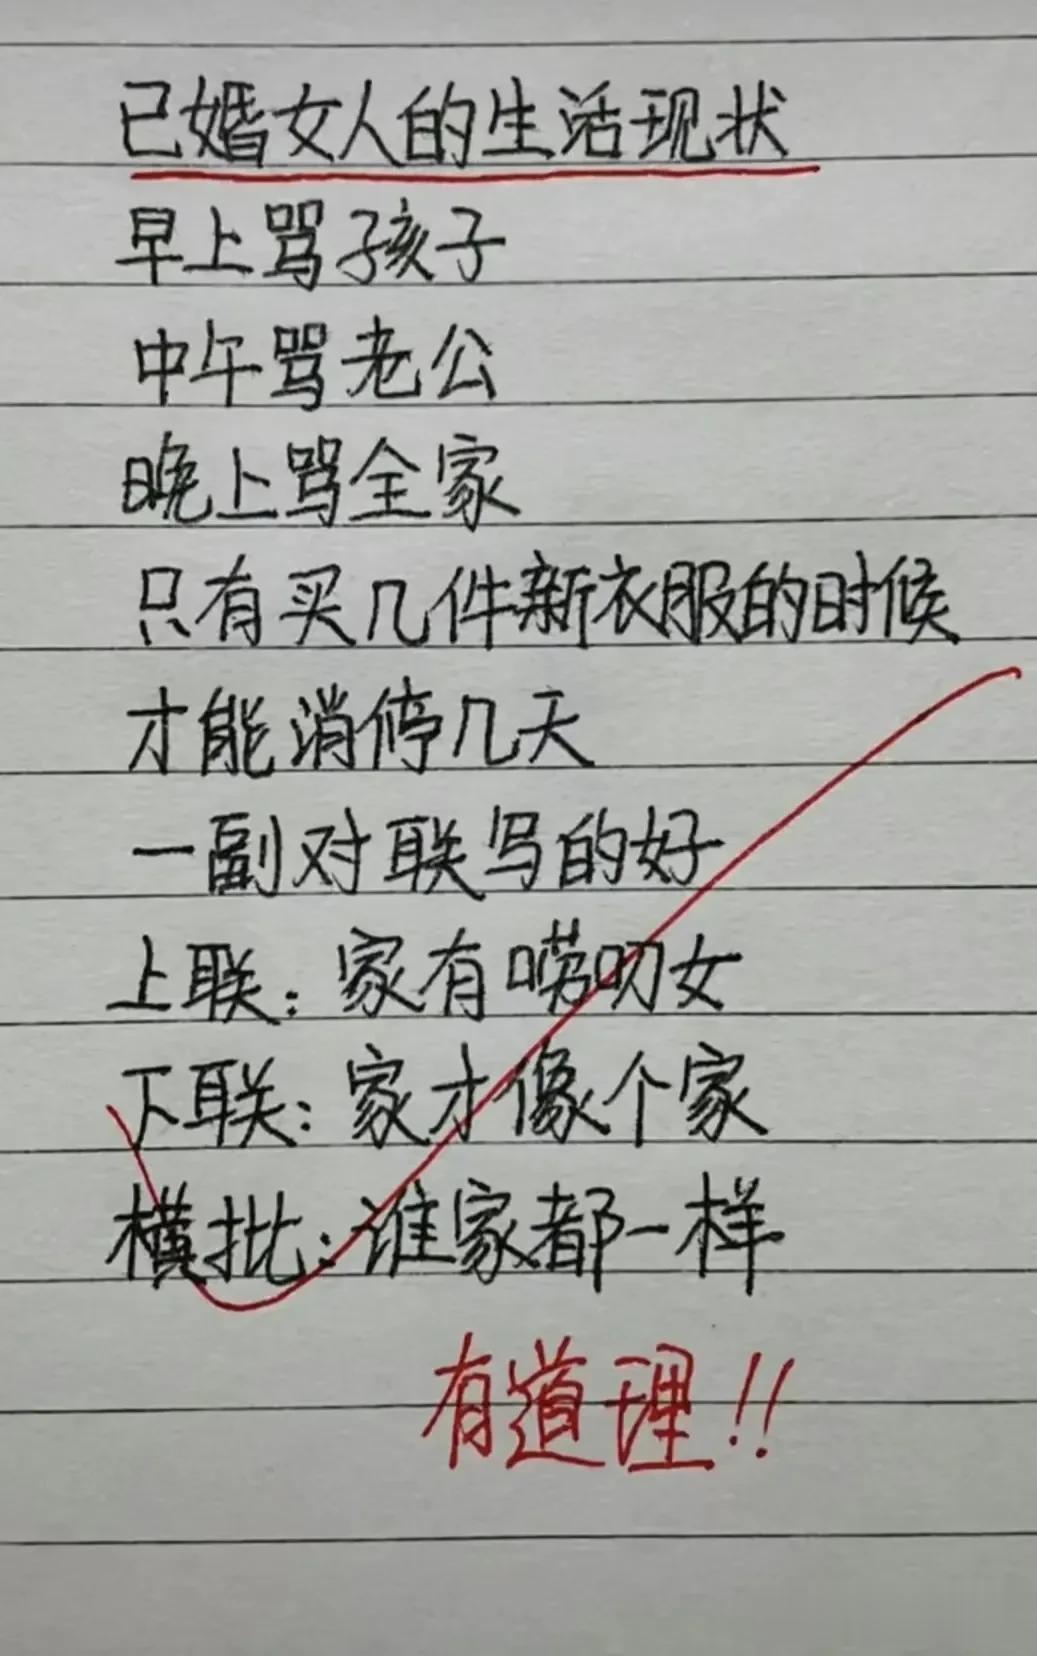 已婚女人的生活现状
早上骂孩子
中午骂老公
晚上骂全家
只有买几件新衣服的时候
才能消停几天
一副对联写的好
上联：家有唠叨女
下联：家才像个家
横批：谁家都一样
有道理!!